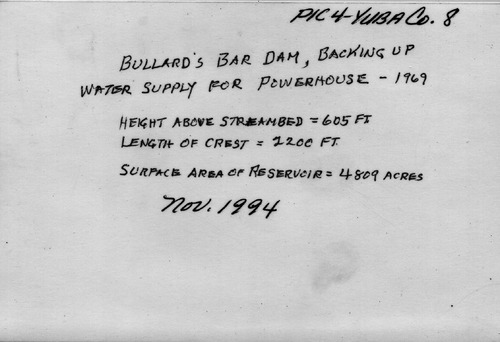 PIC 4-YUBA CO. 8
BULLARD'S BAR DAM, BACKING UP
WATER SUPPLY FOR POWERHOUSE - 1969
HEIGHT ABOVE STREAMBED = 605 FT
LENGTH OF CREST = 2200 FT.
SURFACE AREA OF RESERVOIR = 4809 ACRES
NOV. 1994